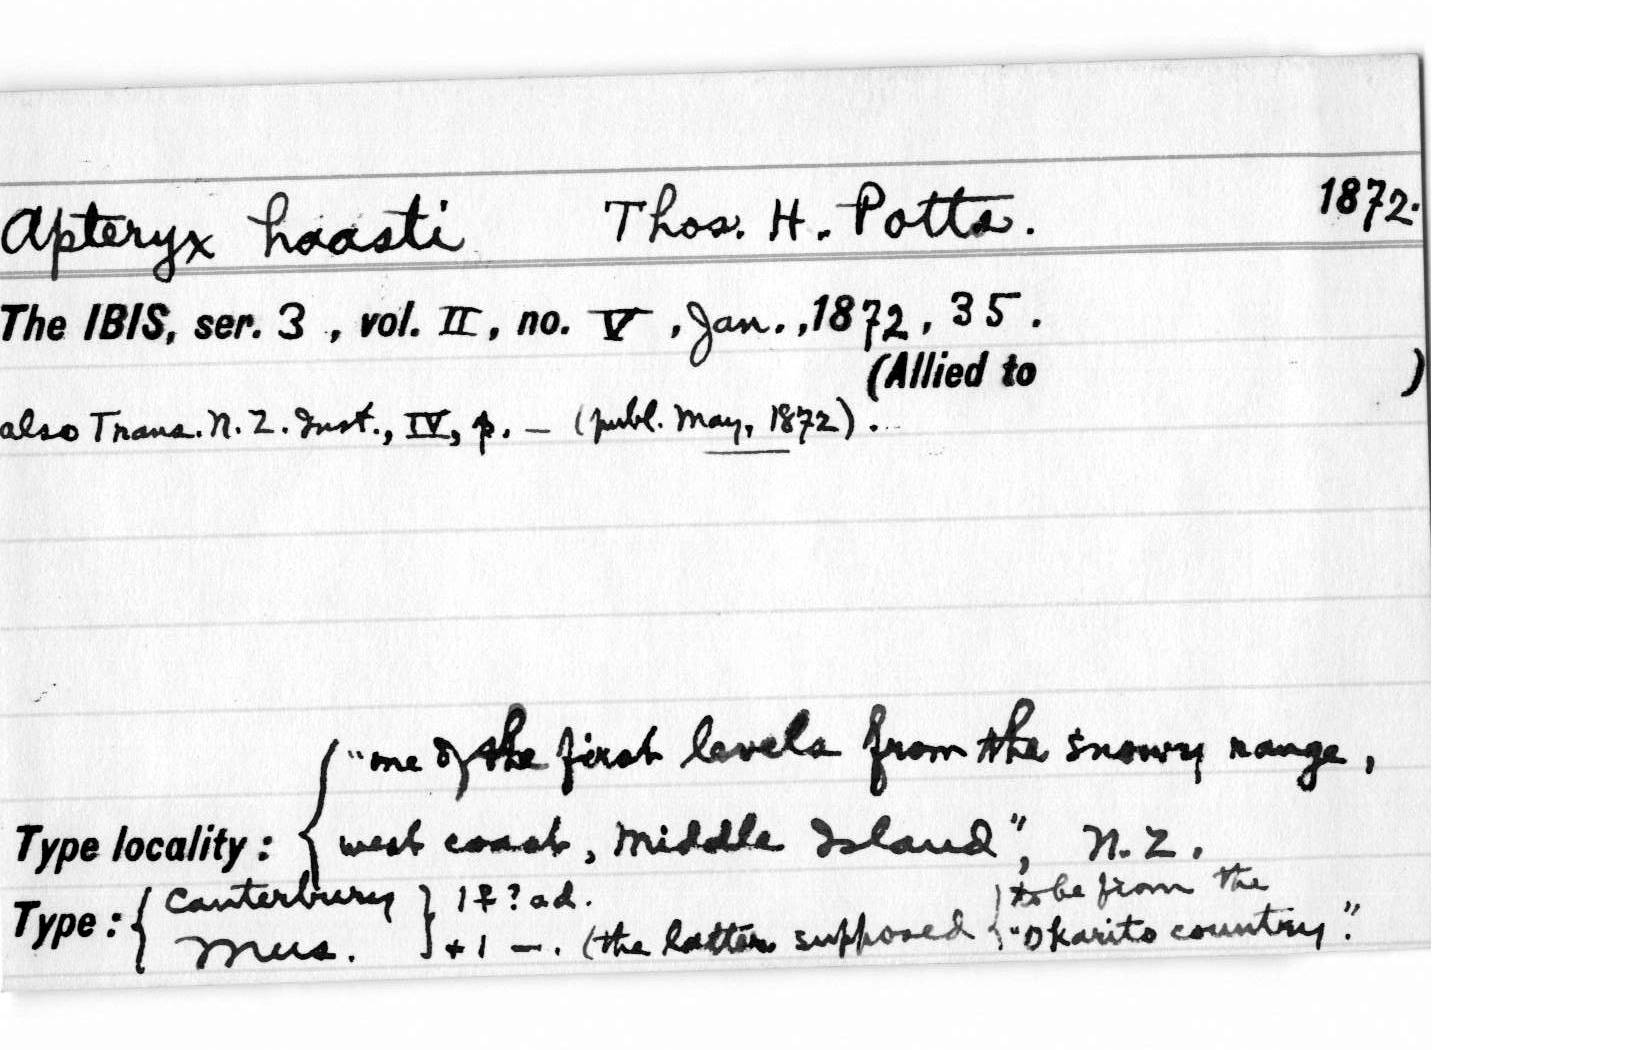 Apteryx haasti Thos. H. Potts. 1872.
The IBIS, ser. 3, vol. II, no. V, Jan., 1872, 35.
(Allied to )
also Trans. N. Z. Inst., IV, p. — (publ. May, 1872).
"one of the first levels from the snowy range,
Type locality: west coast, Middle Island", N. Z.
Type: Canterbury Mus. 1 ♀? ad.
+ 1 —. (the latter supposed to be from the
"Okarito country".